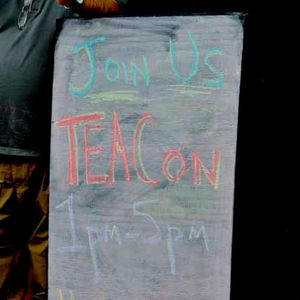 Join Us
TEACon
1pm-5pm